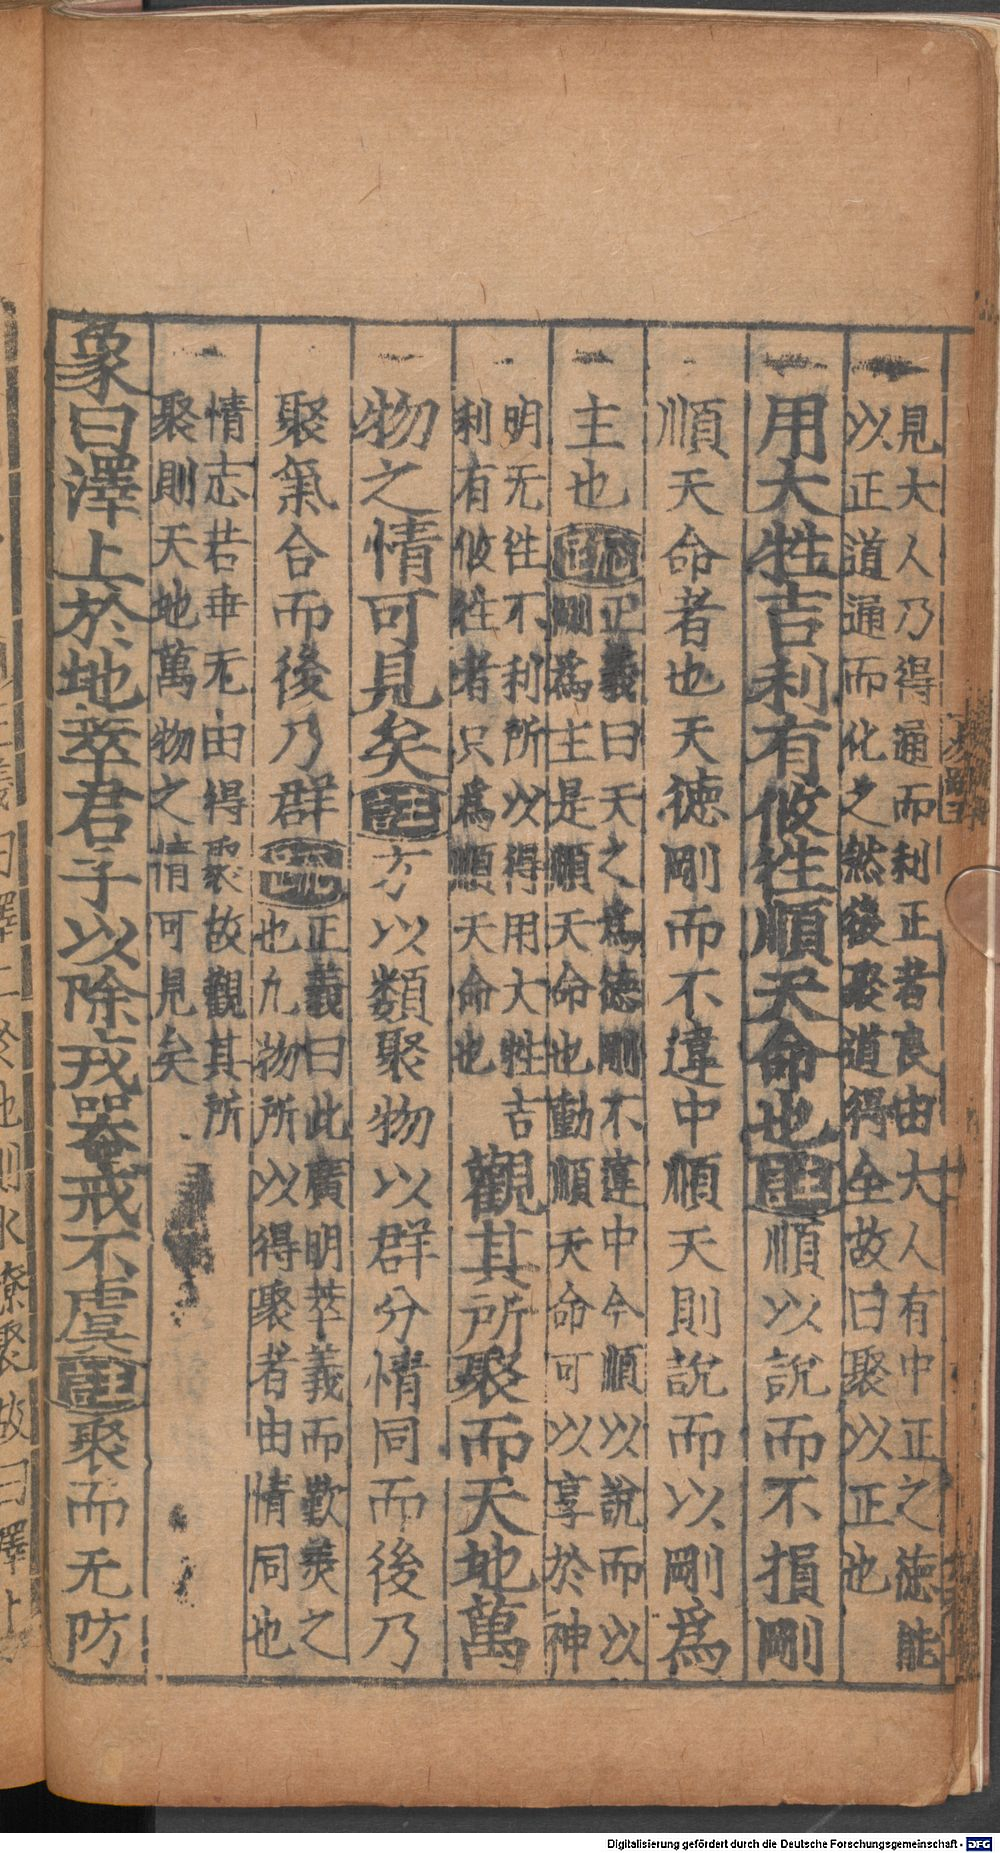 見大人乃得通而利正者良由大人有中正之德能
以正道通而化之然後聚道得全故曰聚以正也
用大牲吉利有攸往順天命也註順以說而不損剛
順天命者也天德剛而不違中順天則說而以剛爲
主也疏正義曰天之爲德剛不違中今順以說而以
剛爲主是順天命也動順天命可以享於神
明无徃不利所以得用大牲吉
利有攸徃者只爲順天命也
觀其所聚而天地萬
物之情可見矣註方以類聚物以群分情同而後乃
聚氣合而後乃群疏正義曰此廣明萃義而歎美之
也凡物所以得聚者由情同也
情志若乖无由得聚故觀其所
聚則天地萬物之情可見矣
象曰澤上於地萃君子以除戎器戒不虞註聚而无防
Digitalisierung gefördert durch die Deutsche Forschungsgemeinschaft - DFG